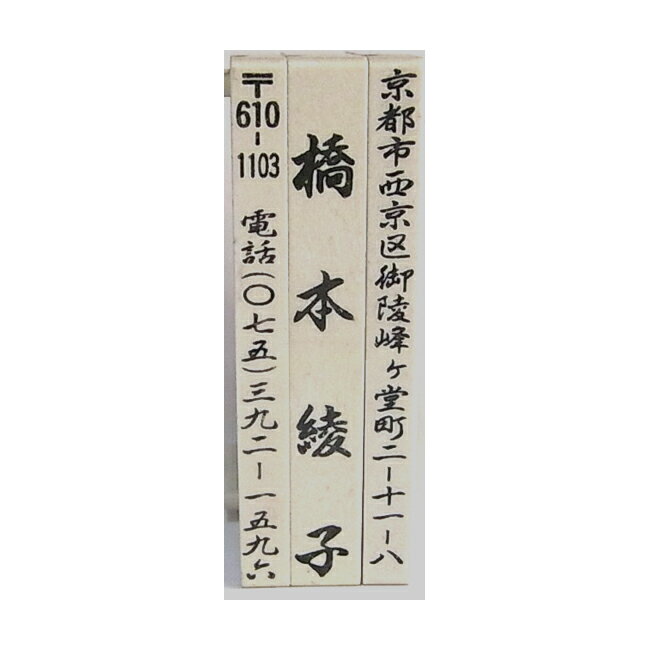 京都市西京区御陵峰ヶ堂町二－十一－八
橋本綾子
〒610-1103
電話(〇七五)三九二－一五九六